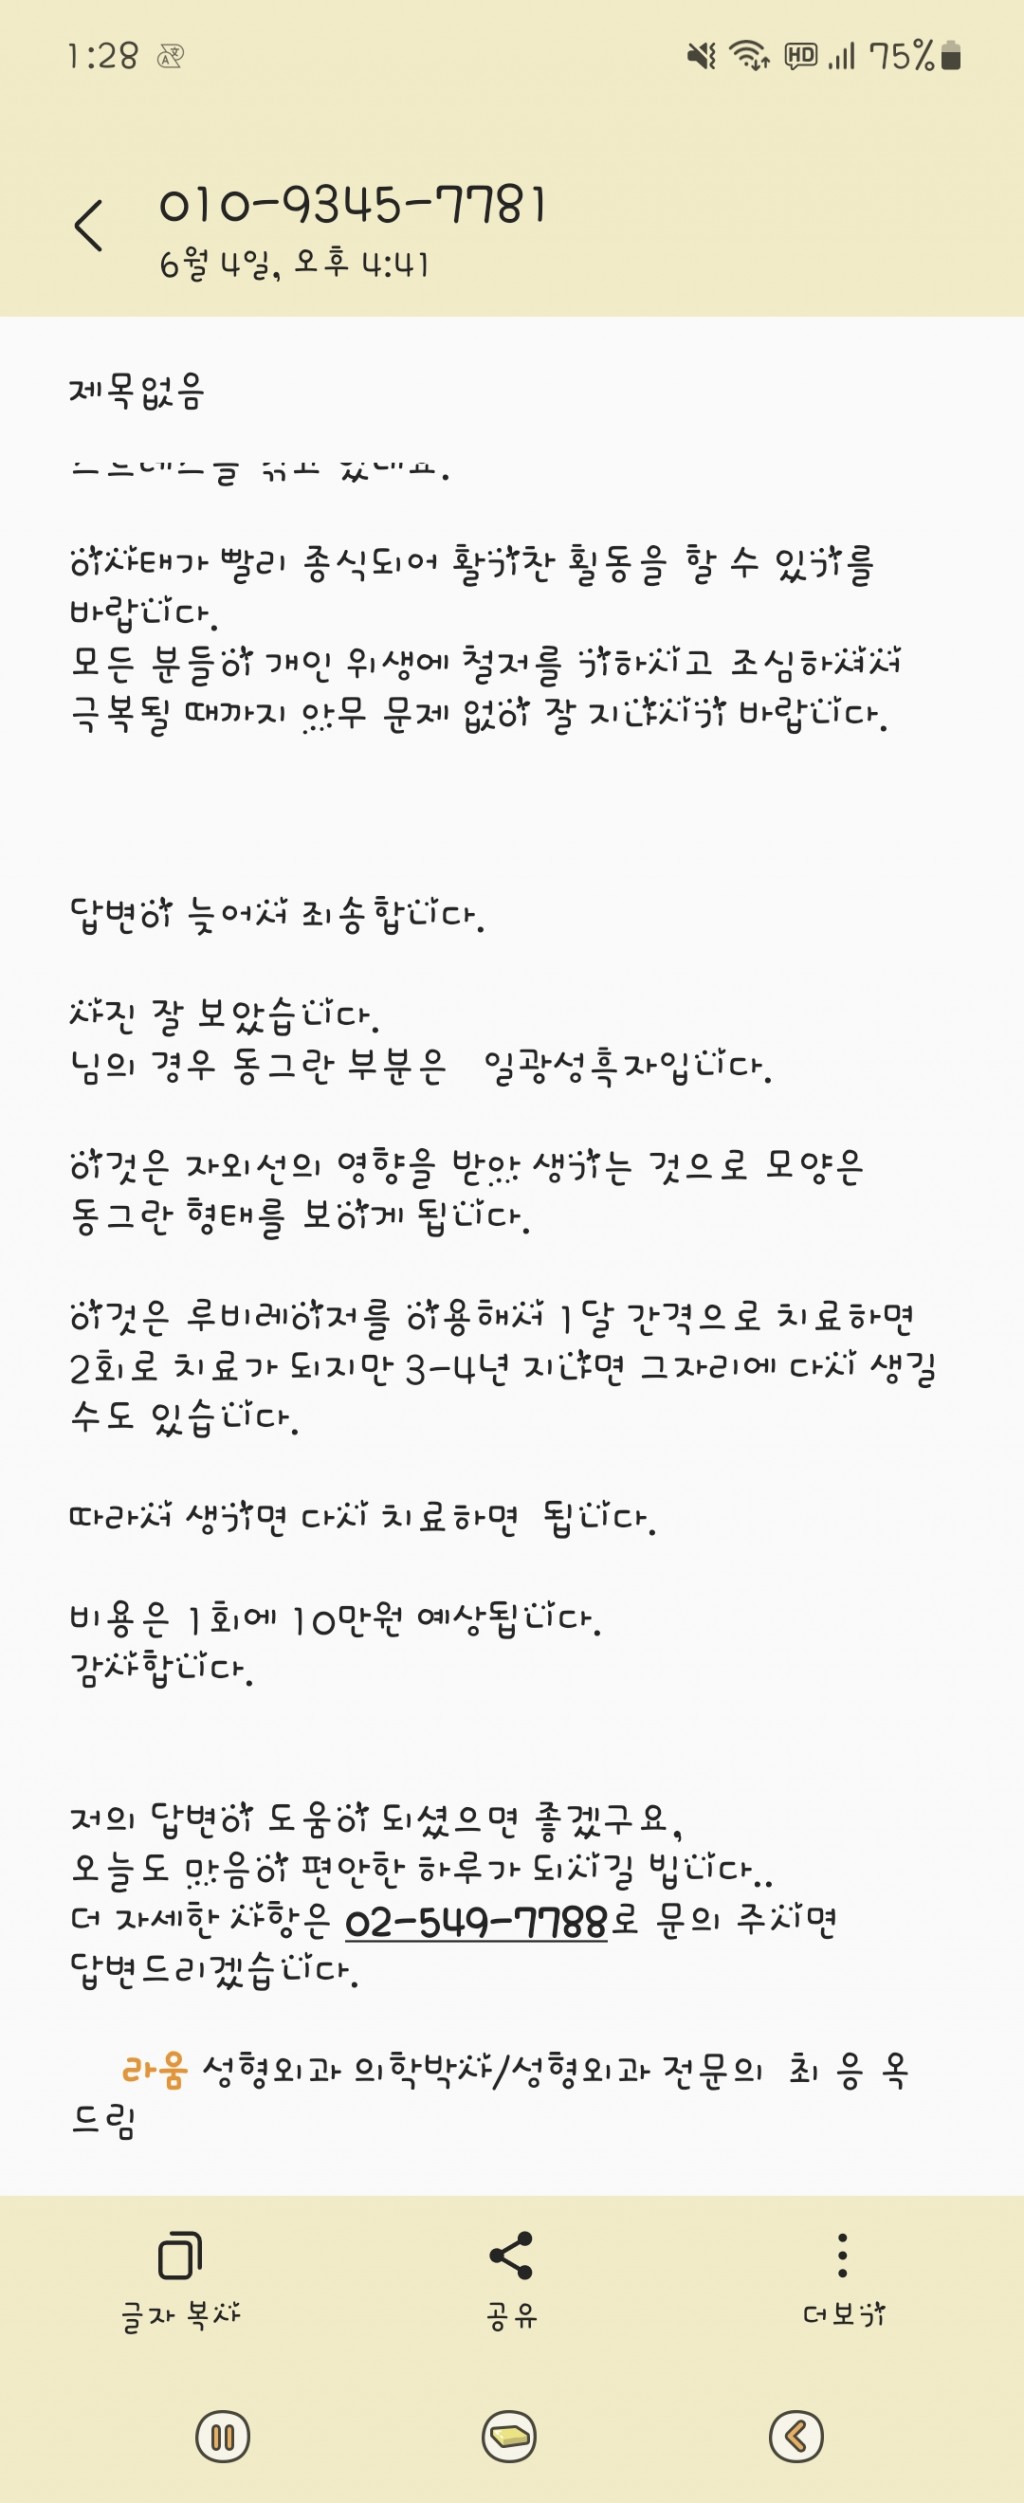 1:28
HD 75%
010-9345-7781
6월 4일, 오후 4:41
제목없음
이사태가 빨리 종식되어 활기찬 활동을 할 수 있기를
바랍니다.
모든 분들이 개인 위생에 철저를 기하시고 조심하셔서
극복될 때까지 아무 문제 없이 잘 지나시기 바랍니다.
답변이 늦어서 죄송합니다.
사진 잘 보았습니다.
님의 경우 동그란 부분은 일광성흑자입니다.
이것은 자외선의 영향을 받아 생기는 것으로 모양은
동그란 형태를 보이게 됩니다.
이것은 루비레이저를 이용해서 1달 간격으로 치료하면
2회로 치료가 되지만 3-4년 지나면 그자리에 다시 생길
수도 있습니다.
따라서 생기면 다시 치료하면 됩니다.
비용은 1회에 10만원 예상됩니다.
감사합니다.
저의 답변이 도움이 되셨으면 좋겠구요,
오늘도 마음이 편안한 하루가 되시길 빕니다..
더 자세한 사항은 02-549-7788로 문의 주시면
답변드리겠습니다.
라움 성형외과 의학박사/성형외과 전문의 최 응 옥
드림
글자 복사
공유
더보기